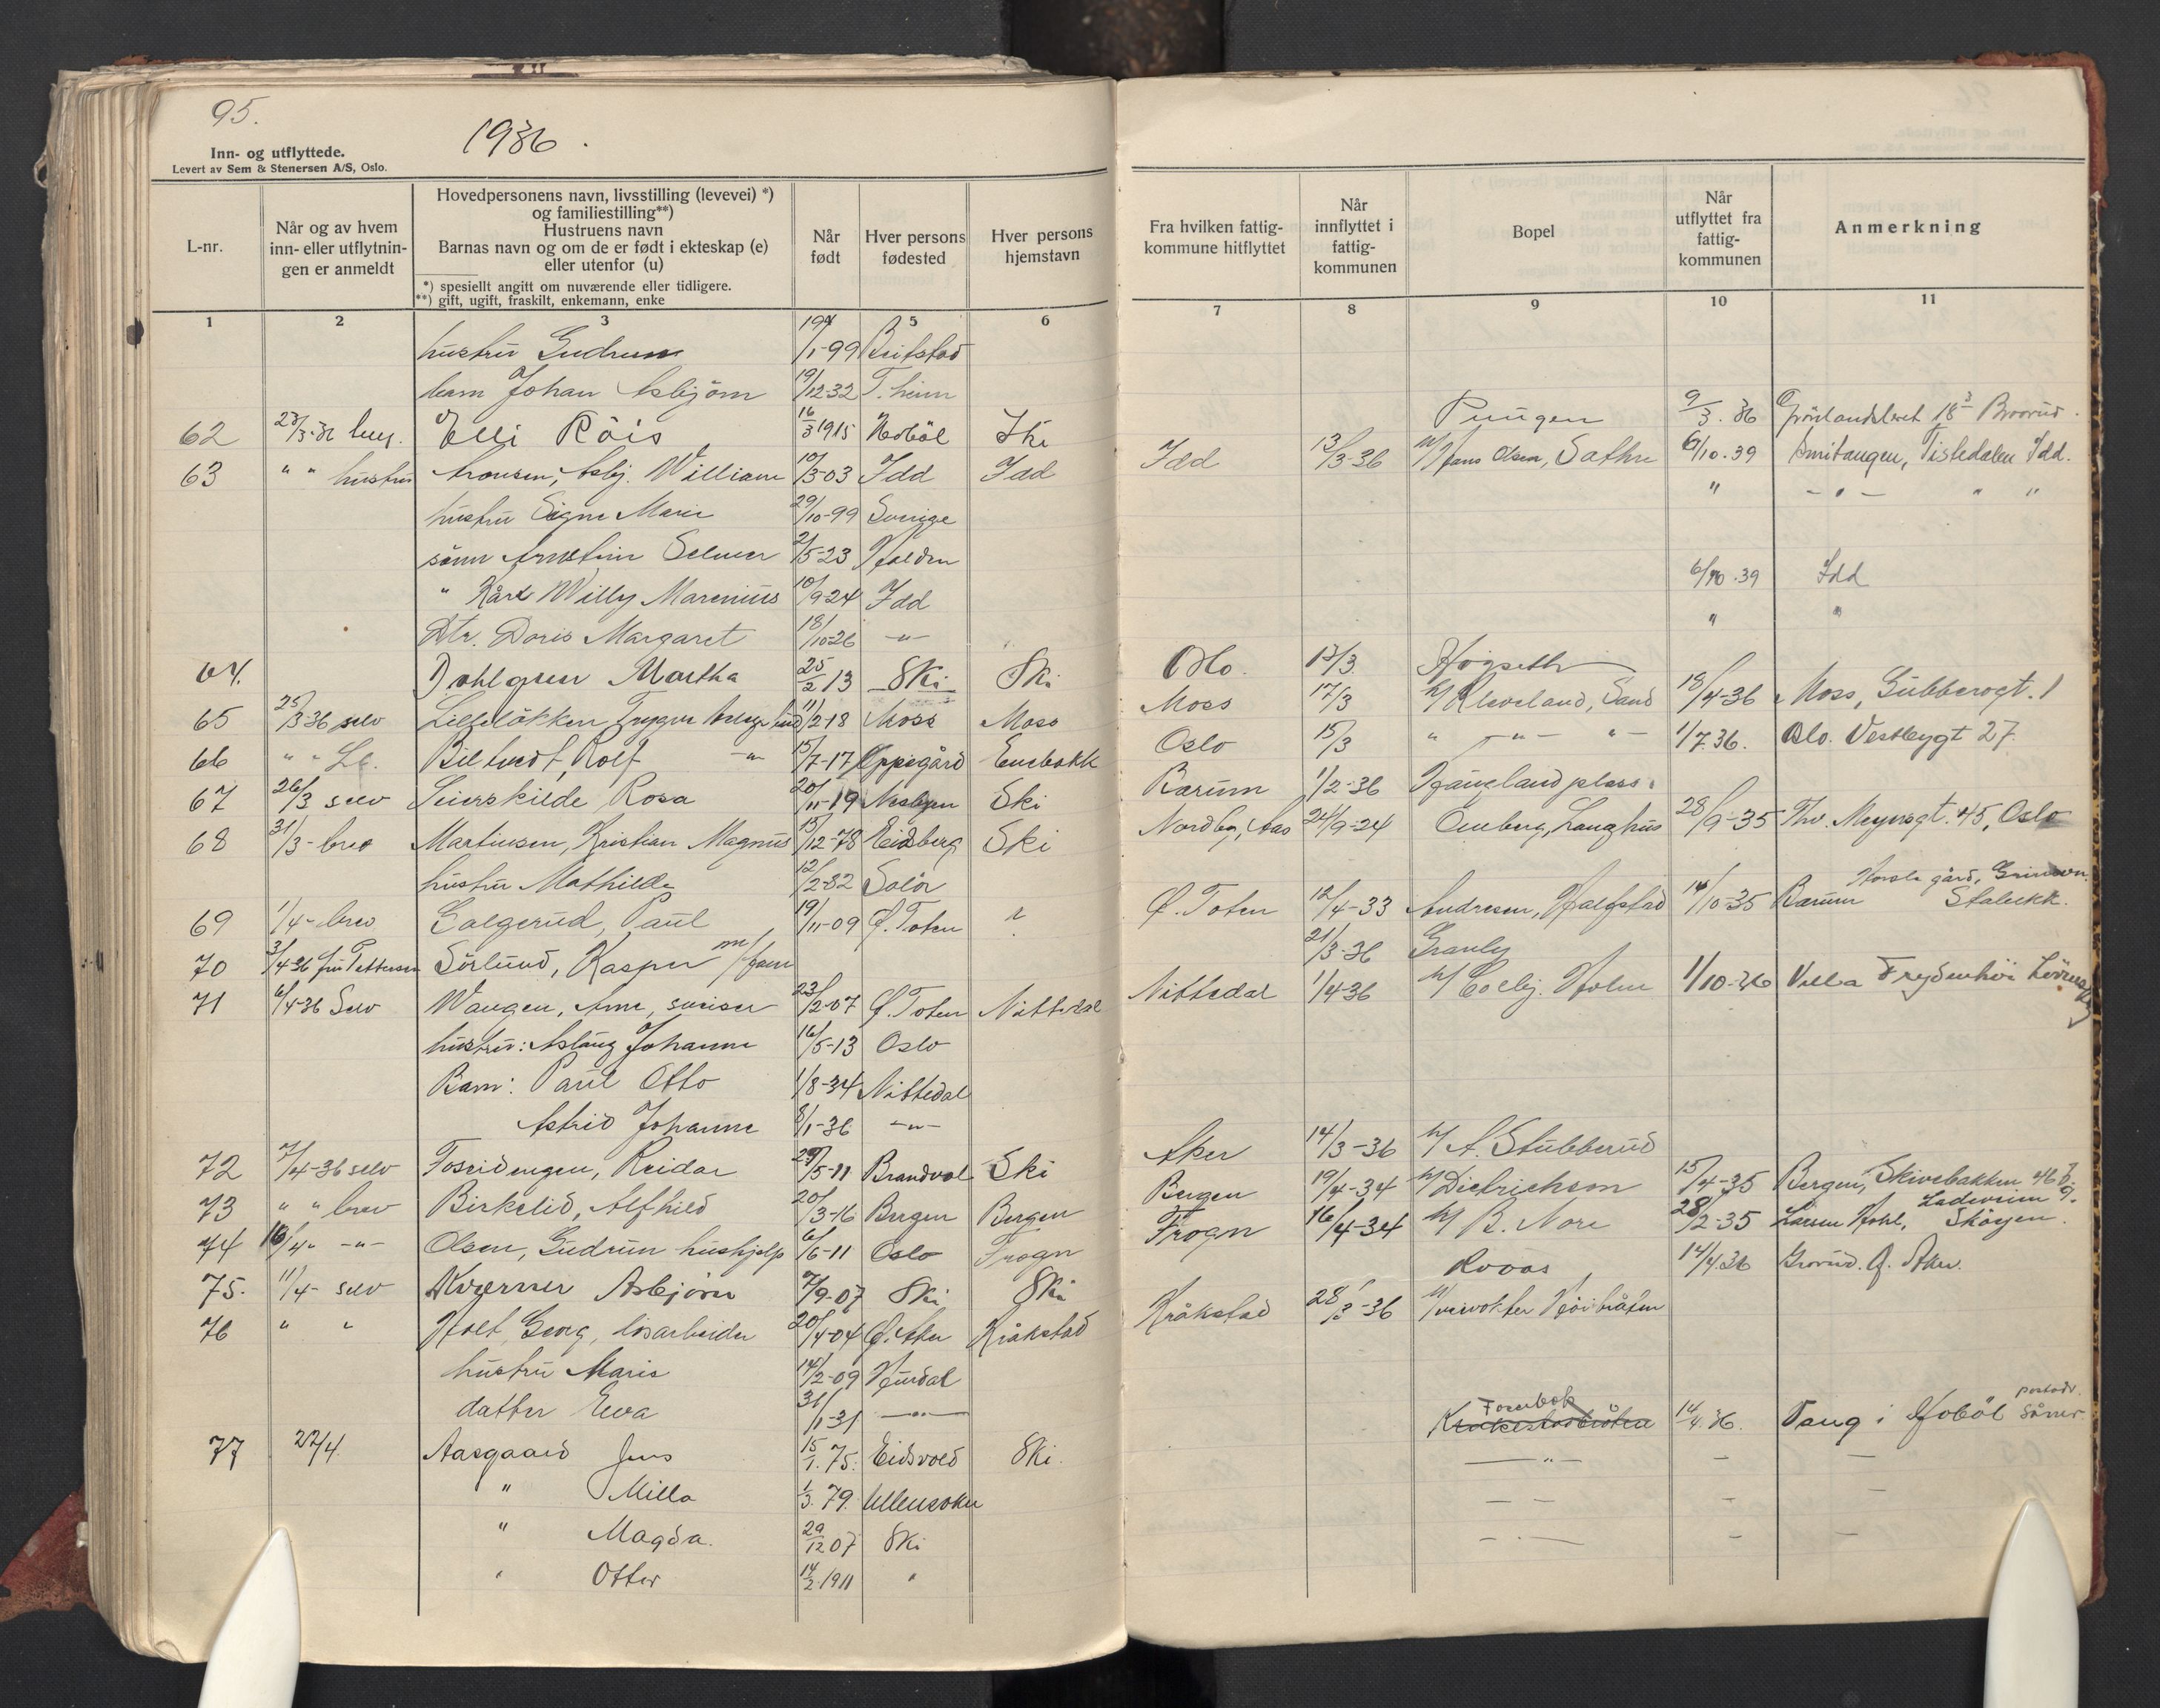 95.
1936.
Inn- og utflyttede.
Levert av Sem & Stenersen A/S, Oslo.
L-nr.
Når og av hvem
inn- eller utflytnin-
gen er anmeldt
Hovedpersonens navn, livsstilling (levevei) *)
og familiestilling**)
Hustruens navn
Barnas navn og om de er født i ekteskap (e)
eller utenfor (u)
*) spesiellt angitt om nuværende eller tidligere.
**) gift, ugift, fraskilt, enkemann, enke
Når
født
Hver persons
fødested
Hver persons
hjemstavn
1 2 3 4 5 6
hustru Gudrun /1-99
barn Johan Asbjörn 19/12-32 T.heim
62 23/3-36 Elli Röis 16/3 1915 Hobøl Ski
63 " " hustru Aronsen, Asbj. William 10/3-03 Idd Idd
hustru Signe Marie 29/10-99 Sverige
sönn Selmer 2/5-23 Halden
" Kåre Willy Marenius 10/9-24 Idd
Dtr. Doris Margaret 18/10-26 -"-
64. Dahlgren Martha 25/2 13 Ski Ski
65 25/3-36 selv Lilleløkken, Trygve 11/2-18 Moss Moss
66 " " Rolf -"- 15/7-17 Oppegård Enebakk
67 26/3 selv Seierskilde, Rosa 20/11-19 Nesbyen Ski
68 31/3- brev Martinsen, Kristian Magnus 15/12-78 Eidsberg Ski
hustru Mathilde 12/2-82 Solør
69 1/4- brev Galgerud, Paul 19/11-09 Ø. Toten ?
70 3/4-36 fru Pettersen Sørlund, Kasper m/fam
71 6/4-36 Selv Waugen, Arne, sveiser 23/2-07 Ø. Toten Nittedal
hustru: Aslaug Johanne 16/5-13 Oslo
Barn: Paul Otto 1/8-34 Nittedal
Astrid Johanne 8/1-36 -"-
72 7/4-36 selv Fosseidengen, Reidar 29/5-11 Brandval Ski
73 " " brev Birkelid, Alfhild 20/3-16 Bergen Bergen
74 10/4- -"- Olsen, Gudrun hushjelp 6/6-11 Oslo Frogn
75. 11/4- selv Kværner Asbjörn 7/9-07 Ski Ski
76 " " Holt, Georg, løsarbeider 20/4-04 Ø. Aker Kråkstad
hustru Marie 14/2-09 Hurdal
datter Eva 31/1-31 -"-
77 22/4. Aasgaard Jens 15/1. 75. Eidsvold Ski.
" Milla 1/3. 79. Ullensaker
" Magda. 29/12 07 Ski
" Otter 14/2 1911 "
Fra hvilken fattig-
kommune hitflyttet
Når
innflyttet i
fattig-
kommunen
Bopel
Når
utflyttet fra
fattig-
kommunen
Anmerkning
7 8 9 10 11
Pungen 9/3. 36 Grönlandsleret 18
Idd 13/3-36 H/ Hans Olsen, Sathre 6/10. 39 Tistedalen Idd.
" -"- " "
6/10. 39 Idd
" "
Oslo. 13/3. Høgseth
Moss 17/3 h/ Kleveland, Sand 18/4-36 Moss, Gubberogt. 1
Oslo 15/3 " -"- "- 1/7 36. Oslo. Vestbygt 27.
Bærum 1/2-36 Haugland plass.
Nordby, Aas 24/9-24 Omberg, Langhus 28/9-35 Thv. Meyersgt. 45, Oslo
Ø. Toten 12/4-33 Andresen, Halfstad 14/10-35 Bærum Horsle gård, Stabekk.
21/3-36 Granly
Nittedal 1/4-36 H/ Holm 1/10-36 Villa Frydenhøi
Aker 14/3-36 h/ A. Stubberud
Bergen 19/4-34 h/ Dietrichson 15/4-35 Bergen, Skivebakken 46 b.
Frogn 16/4-34 h/ B. Nore 28/2-35 Larsen Hohl, Skøyen.
Roaas 14/4.36 Grorud. Ø. Aker.
Kråkstad 28/3-36
Fosserbek
14/4. 36. Vang i Hobøl postadr. Såner
-"- - -
- - - -
- - - -